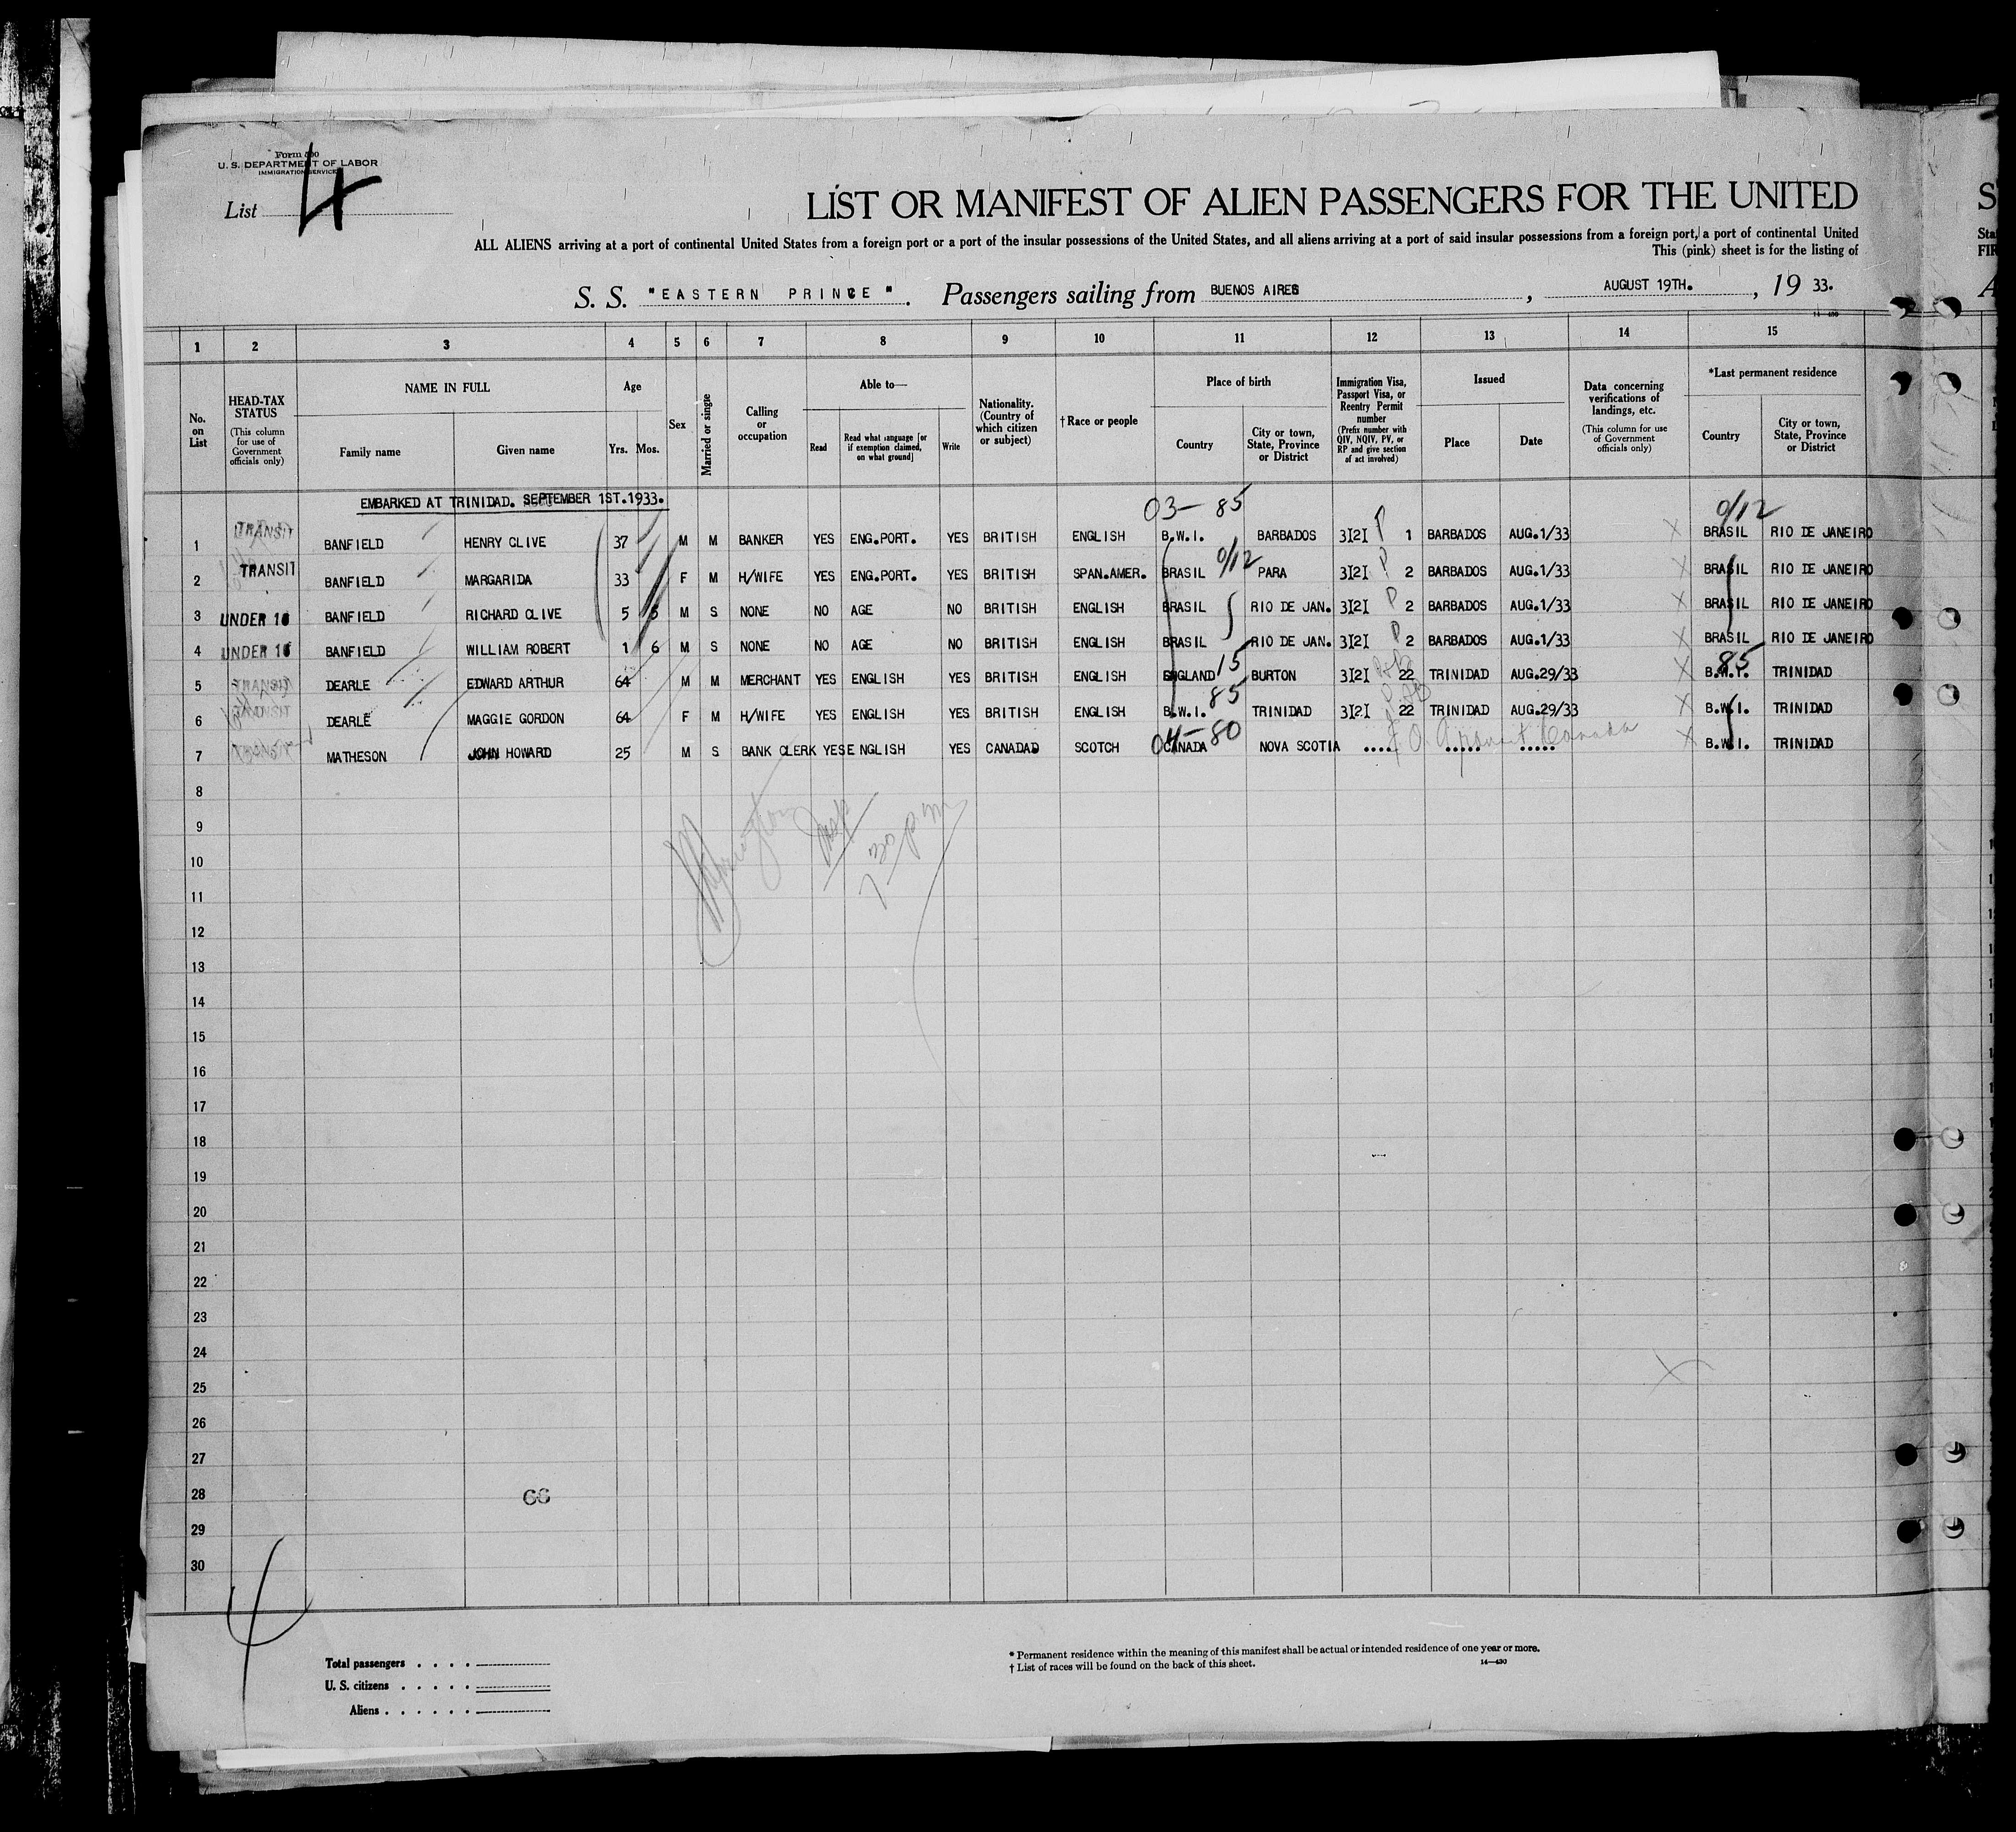 Form 500
U. S. DEPARTMENT OF LABOR
IMMIGRATION SERVICE
List 4
LIST OR MANIFEST OF ALIEN PASSENGERS FOR THE UNITED
ALL ALIENS arriving at a port of continental United States from a foreign port or a port of the insular possessions of the United States, and all aliens arriving at a port of said insular possessions from a foreign port, a port of continental United
This (pink) sheet is for the listing of
S. S. "EASTERN PRINCE". Passengers sailing from BUENOS AIRES, AUGUST 19TH., 19 33.
1 2 3 4 5 6 7 8 9 10 11 12 13 14 15
No. on List
HEAD-TAX STATUS (This column for use of Government officials only)
NAME IN FULL
Family name Given name
Age
Yrs. Mos.
Sex
Married or single
Calling or occupation
Able to—
Read Read what language [or if exemption claimed, on what ground] Write
Nationality. (Country of which citizen or subject)
† Race or people
Place of birth
Country City or town, State, Province or District
Immigration Visa, Passport Visa, or Reentry Permit number (Prefix number with QIV, NQIV, PV, or RP and give section of act involved)
Issued
Place Date
Data concerning verifications of landings, etc. (This column for use of Government officials only)
*Last permanent residence
Country City or town, State, Province or District
EMBARKED AT TRINIDAD. SEPTEMBER 1ST.1933.
03-85 0/12
1 TRANSIT BANFIELD HENRY CLIVE 37 M M BANKER YES ENG.PORT. YES BRITISH ENGLISH B.W.I. BARBADOS 3I2I P 1 BARBADOS AUG.1/33 X BRASIL RIO DE JANEIRO
2 TRANSIT BANFIELD MARGARIDA 33 F M H/WIFE YES ENG.PORT. YES BRITISH SPAN.AMER. BRASIL 0/12 PARA 3I2I P 2 BARBADOS AUG.1/33 X BRASIL RIO DE JANEIRO
3 UNDER 16 BANFIELD RICHARD CLIVE 5 6 M S NONE NO AGE NO BRITISH ENGLISH BRASIL RIO DE JAN. 3I2I P 2 BARBADOS AUG.1/33 X BRASIL RIO DE JANEIRO
4 UNDER 16 BANFIELD WILLIAM ROBERT 1 6 M S NONE NO AGE NO BRITISH ENGLISH BRASIL RIO DE JAN. 3I2I P 2 BARBADOS AUG.1/33 X BRASIL RIO DE JANEIRO
5 TRANSIT DEARLE EDWARD ARTHUR 64 M M MERCHANT YES ENGLISH YES BRITISH ENGLISH ENGLAND 15 BURTON 3I2I 22 TRINIDAD AUG.29/33 X 85 B.W.I. TRINIDAD
6 TRANSIT DEARLE MAGGIE GORDON 64 F M H/WIFE YES ENGLISH YES BRITISH ENGLISH B.W.I. 85 TRINIDAD 3I2I 22 TRINIDAD AUG.29/33 X B.W.I. TRINIDAD
7 MATHESON JOHN HOWARD 25 M S BANK CLERK YES ENGLISH YES CANADAD SCOTCH CANADA 04-80 NOVA SCOTIA .... ..... ..... Canada X B.W.I. TRINIDAD
8
9
10
11
12
13
14
15
16
17
18
19
20
21
22
23
24
25
26
27
28 66
29
30
4
Total passengers . . . .
U. S. citizens . . . . .
Aliens . . . . . .
* Permanent residence within the meaning of this manifest shall be actual or intended residence of one year or more.
† List of races will be found on the back of this sheet.
14—430